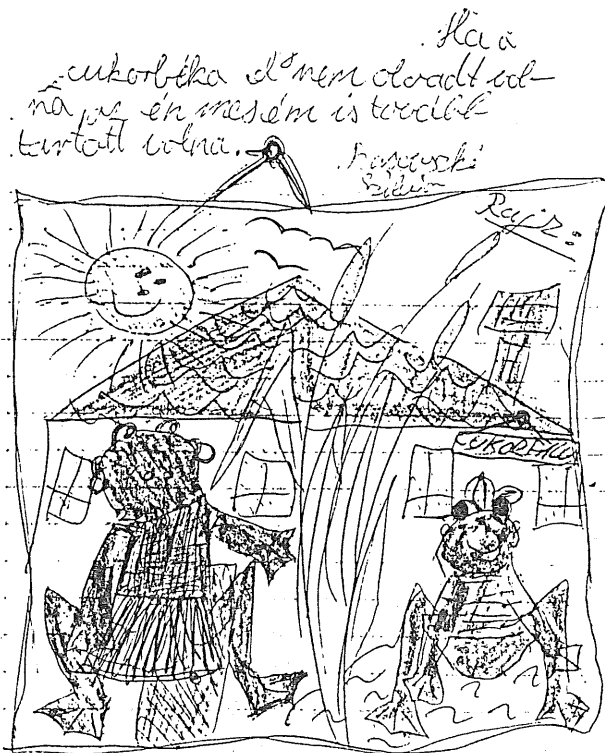 Ha a
cukorbéka el nem olvadt vol-
na, az én mesém is tovább
tartott volna.
Rajz: